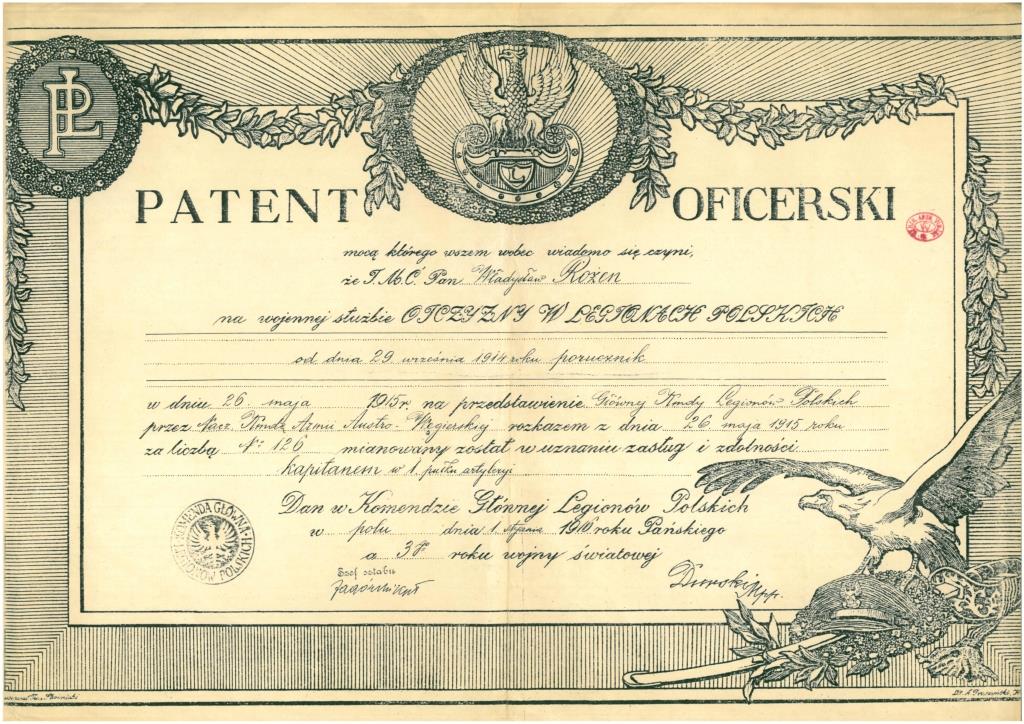 PL
PATENT OFICERSKI
mocą którego wszem wobec wiadomo się czyni,
że J.M.Ć. Pan Władysław Rożen
na wojennej służbie OJCZYZNY W LEGIONACH POLSKICH
od dnia 29 września 1914 roku porucznik
w dniu 26 maja 1915 r. na przedstawienie Główney Kmdy Legionów Polskich
przez Nacz. Kmdę Armii Austro-Węgierskiej rozkazem z dnia 26 maja 1915 roku
za liczbą Nr 126 mianowany został w uznaniu zasług i zdolności
kapitanem w 1. pułku artyleryi
Dan w Komendzie Głównej Legionów Polskich
w polu dnia 1. stycznia 1916 roku Pańskiego
a 3go roku wojny światowej
KOMENDA GŁÓWNA LEGIONÓW POLSKICH
Szef sztabu
Zagórski
Durski Mpp.